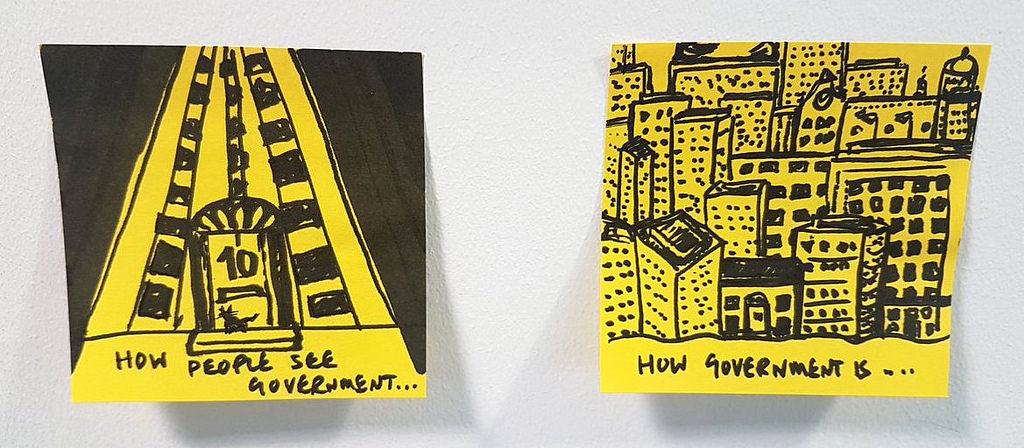 10
HOW PEOPLE SEE
GOVERNMENT...
HOW GOVERNMENT IS ....